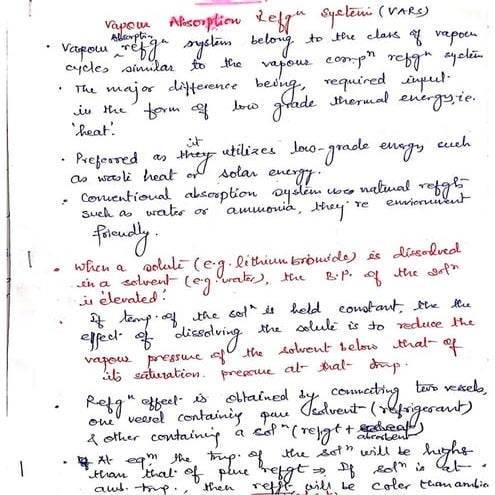 Vapour Absorption Refgn System (VARS)
• Vapour Absorption refgn system belong to the class of vapour
cycles similar to the vapour compn refgn system
• The major difference being, required input
in the form of low grade thermal energy, i.e.
'heat'.
• Preferred as it they utilizes low-grade energy such
as waste heat or solar energy.
• Conventional absorption system uses natural refgts
such as water or ammonia, they're environment
friendly.
• When a solute (e.g. lithium bromide) is dissolved
in a solvent (e.g. water), the B.P. of the soln
is elevated.
If temp. of the soln is held constant, the the
effect of dissolving the solute is to reduce the
vapour pressure of the solvent below that of
its saturation pressure at that temp.
• Refgn effect is obtained by connecting two vessels,
one vessel containing pure solvent (refrigerant)
& other containing a soln (refgt + absorbent
• At eqm the temp. of the soln will be highe
than that of pure refgt ⇒ If soln is at
amb. temp., then refgt will be coler than ambie